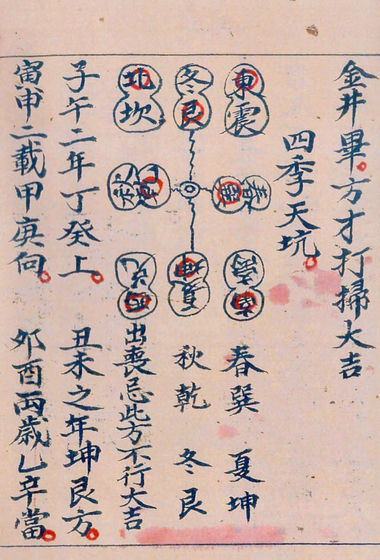 金井畢。方才打掃大吉
四季天坑。
東震
春
冬艮
坤夏
北坎
春巽 夏坤
秋乾 冬艮
出喪忌此方不行大吉
子午二年丁癸上。 丑未之年坤艮方。
寅申二載甲庚向。 卯酉兩歲乙辛當。